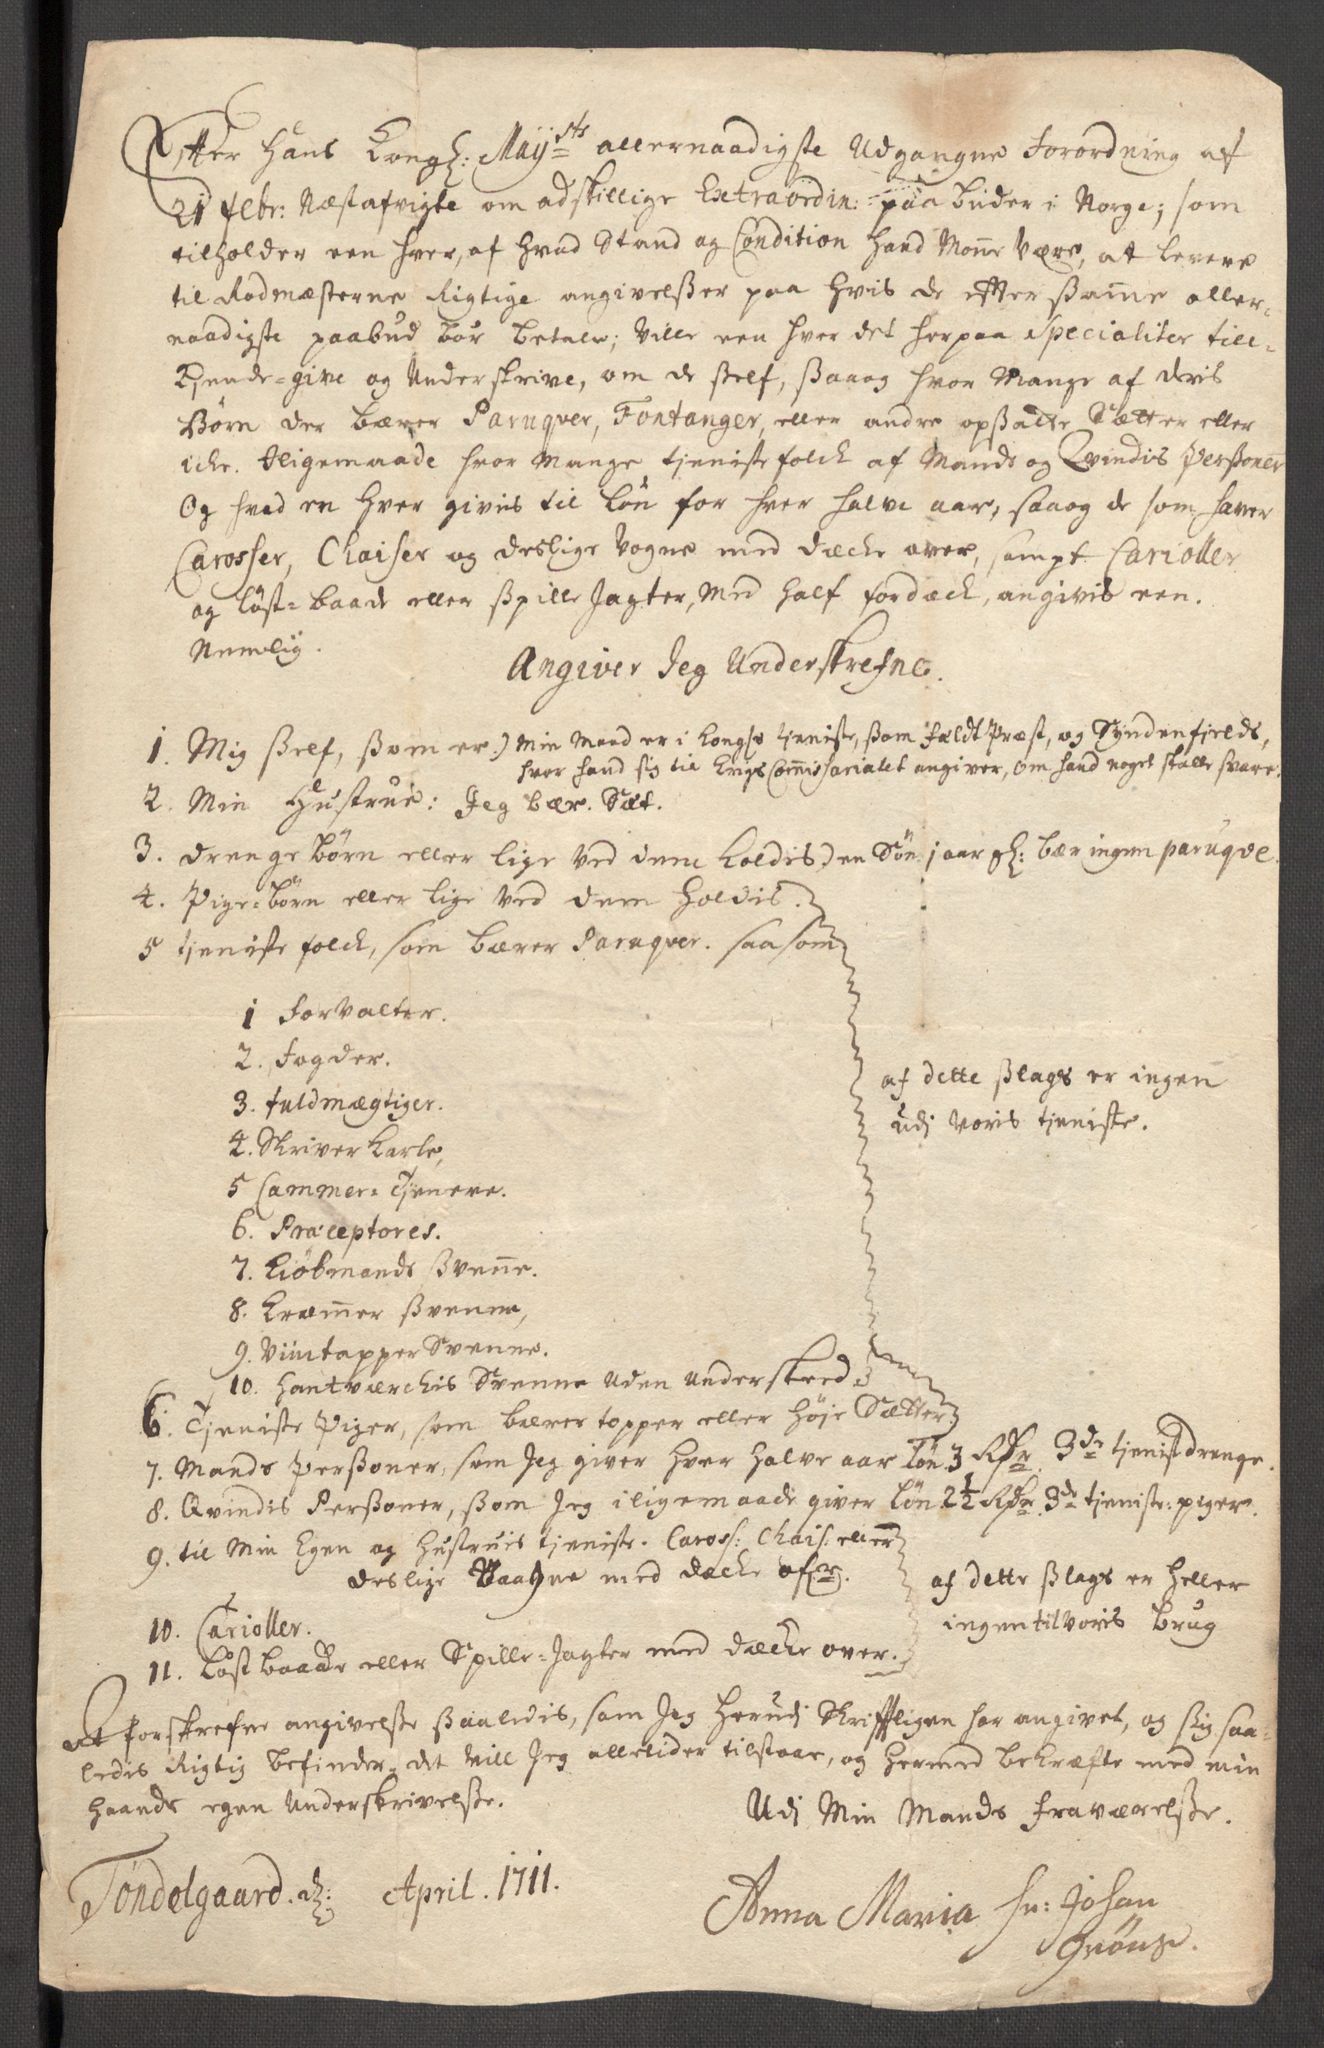 Efter Hans Kongl: Mayts allernaadigste Udgangne Forordning af
21 febr: Næstafvigte om adskillige Extraordin: paabuder i Norge; som
tilholder een hver, af hvad Stand og Condition hand Monne Være, at levere
til Rodmæsterne Rigtige angivelßer paa hvis de efter ßamme aller-
naadigste paabud bør betale; Ville een hver det herpaa specialiter till-
Kjende-give og Underskrive, om de ßelf, ßaaog hvor Mange af deris
Børn der bærer Paruqver, Fontanger, eller andre opßatte Sætter eller
icke. Iligemaade hvor mange tieniste folck af Mands og Qvindis Perßoner
Og hvad en hver givis til løn for hver halve aar, saaog de som haver
Carosser, Chaiser og deslige Vogne med dæcke over, sampt Carioller
og løst-baade eller ßpille Jagter, Med half fordæck, angivis een.
Nemlig.
Angiver Jeg Underskrefne.
1. Mig ßelf, ßom er) Min Mand er i Kongs tieniste, ßom Feldt Præst, og Syndenfields,
hvor hand sig til Krigs Commissariatet angiver, om hand noget skulle svare.
2. Min Hustrue: Jeg bær. Sæt.
3. drenge børn eller lige ved dem holdis) en Søn 1 aar gl: bær ingen paruqve.
4. Pige-børn eller lige ved dem holdis.
5 tieniste folck, som bærer Paruqver. saasom
1 Forvalter.
2. Fogder.
3. fuldmægtiger.
4. Skriver Karle,
5 Cammer-Tienere.
6. Præceptores.
7. Kiøbmands ßvenne.
8. Kræmmer ßvenne,
9. Viintapper Svenne.
10. Hantværckis Svenne uden underskeed
af dette ßlags er ingen
udj voris tieniste.
6. Tieniste Piger, som bærer topper eller høje Sætter
7. Mands Perßoner, som Jeg giver hver halve aar Løn 3 Rdr 3de tienistdrenge.
8. Qvindis Perßoner, ßom Jeg iligemaade giver løn 2½ Rdr. 3de tieniste-piger.
9. til Min Egen og Hustruis tieniste. Caross: Chais: eller
deslige Vaagne med dæcke ofver.
10. Carioller.
11. Løst baade eller Spille-Jagter med dæcke over.
af dette ßlags er heller
ingen til voris brug
At forskrefne angivelße ßaaledis, som Jeg herudj Skrifftligen har angivet, og ßig saa-
ledis Rigtig befinder, det vill Jeg alletider tilstaae, og hermed bekræfte med min
haands egen Underskrivelße.
Udj Min Mands fraværelße.
Tøndelgaard. d: April. 1711.
Anna Maria Sr: Johan
Grøns.